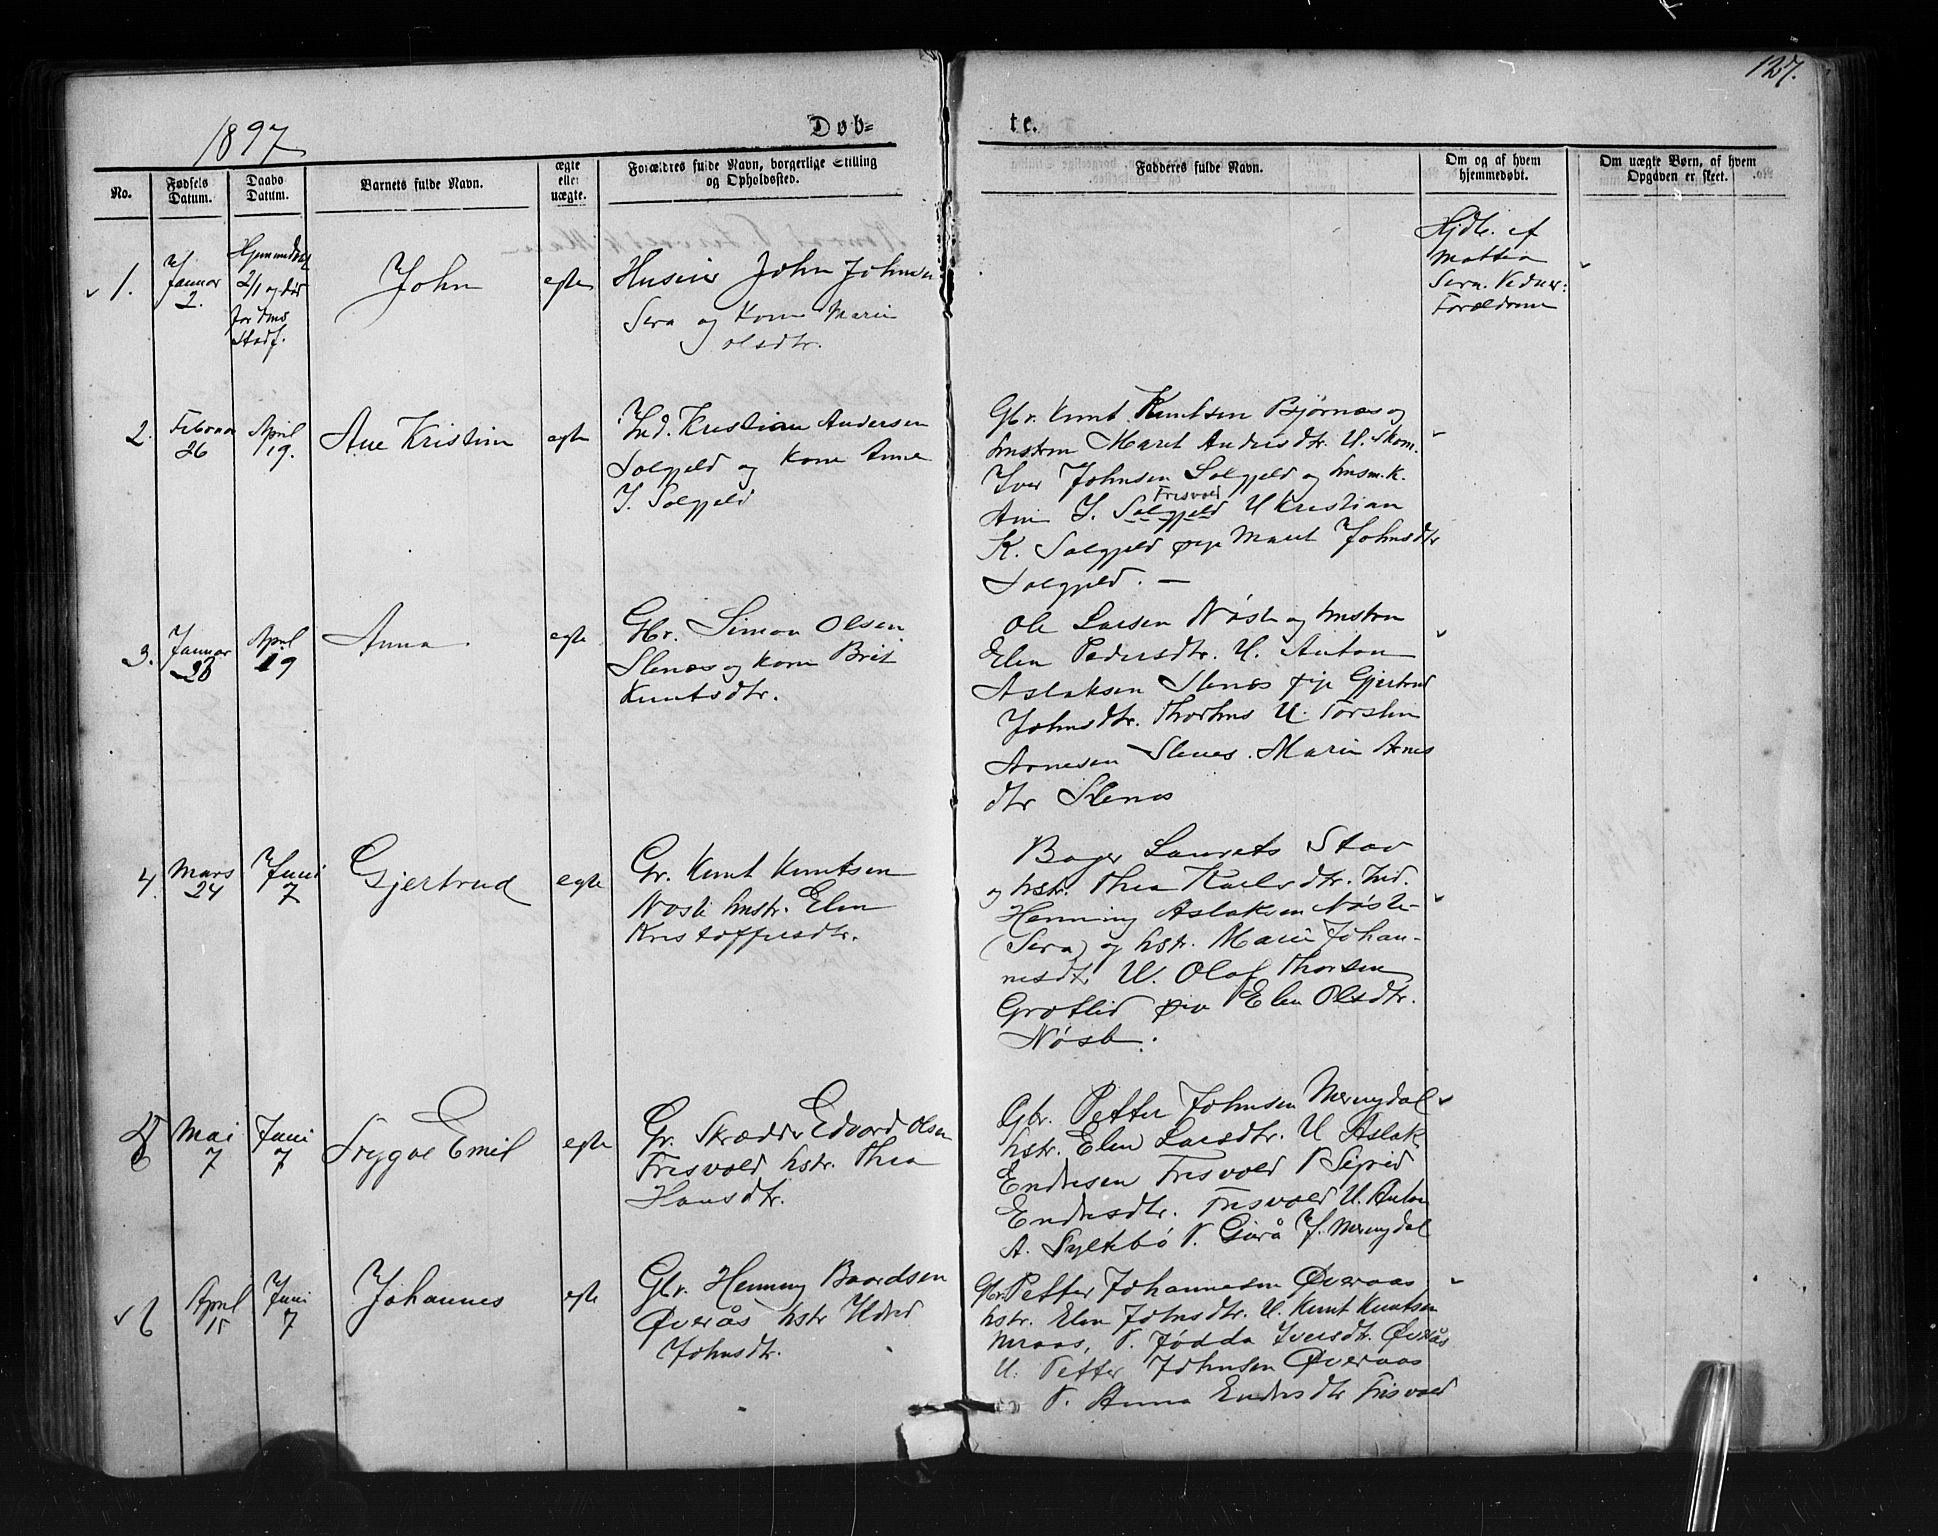 127.
1897
Døb-
te.
No.
Fødsels Datum.
Daabs Datum.
Barnets fulde Navn.
ægte eller uægte.
Forældres fulde Navn, borgerlige Stilling og Opholdssted.
Fadderes fulde Navn.
Om og af hvem hjemmedøbt.
Om uægte Børn, af hvem Opgaven er skeet.
1.
Januar
2.
2/1 og død
før dens
Stadf.
John
egte
John Johnsen
Sera og Kone Marie
Olsdtr.
Hjdb. af
Mattea
Sera. Vidner:
Forældrene
2.
Februar
26
April
19.
Ane Kristine
egte
Ind. Kristian Andersen
Solgjeld og Kone Anne
J. Solgjeld
Gbr. Knut Knutsen Bjørnaas og
hustru Maret Andersdtr. U. Skom.
Iver Johnsen Solgjeld og husm.k.
Frisvold
Ane J. Solgjeld U Kristian
K. Solgjeld pige Maret Johnsdtr
Solgjeld. —
3.
Januar
28
April
19
Anna
egte
Gbr. Simon Olsen
Slenes og Kone Brit
Knutsdtr.
Ole Larsen Nøste og hustru
Elen Pedersdtr. U. Anton
Aslaksen Slenes pige Gjertrud
Johnsdtr. U. Torstein
Arnesen Slenes. Marie Arnes
dtr Slenes
4.
Mars
24
Juni
7
Gjertrud
egte
Gr. Knut Knutsen
Nøste hustr. Elen
Kristoffersdtr.
Bager Laurits Stav
og hstr. Thea Karlsdtr. Ind.
Henning Aslaksen Nøste
(Sera) og hstr. Marie Johan-
nesdtr U. Olaf Thorsen
Grøtlid pig Elen Olsdtr.
Nøste.
5
Mai
7
Juni
7
Trygve Emil
egte
Gr. Skrædder Edvard Olsen
Frisvold hstr. Thea
Hansdtr.
Gbr. Petter Johnsen Meringdal
hstr. Elen Larsdtr. U Aslak
Endresen Frisvold P Sigrid
Endresdtr. Frisvold U. Anton
A. Syltebø P. Gurå J. Meringdal
6
April
15
Juni
7
Johannes
egte
Gbr. Henning Baardsen
Øverås hstr
Johnsdtr.
Gbr. Petter Johannesen Øveraas
hstr. Elen Johnsdtr. U. Knut Knutsen
P. Jødda Iversdtr. Øverås
U. Petter Johnsen Øveraas
P. Anna Endresdtr Frisvold